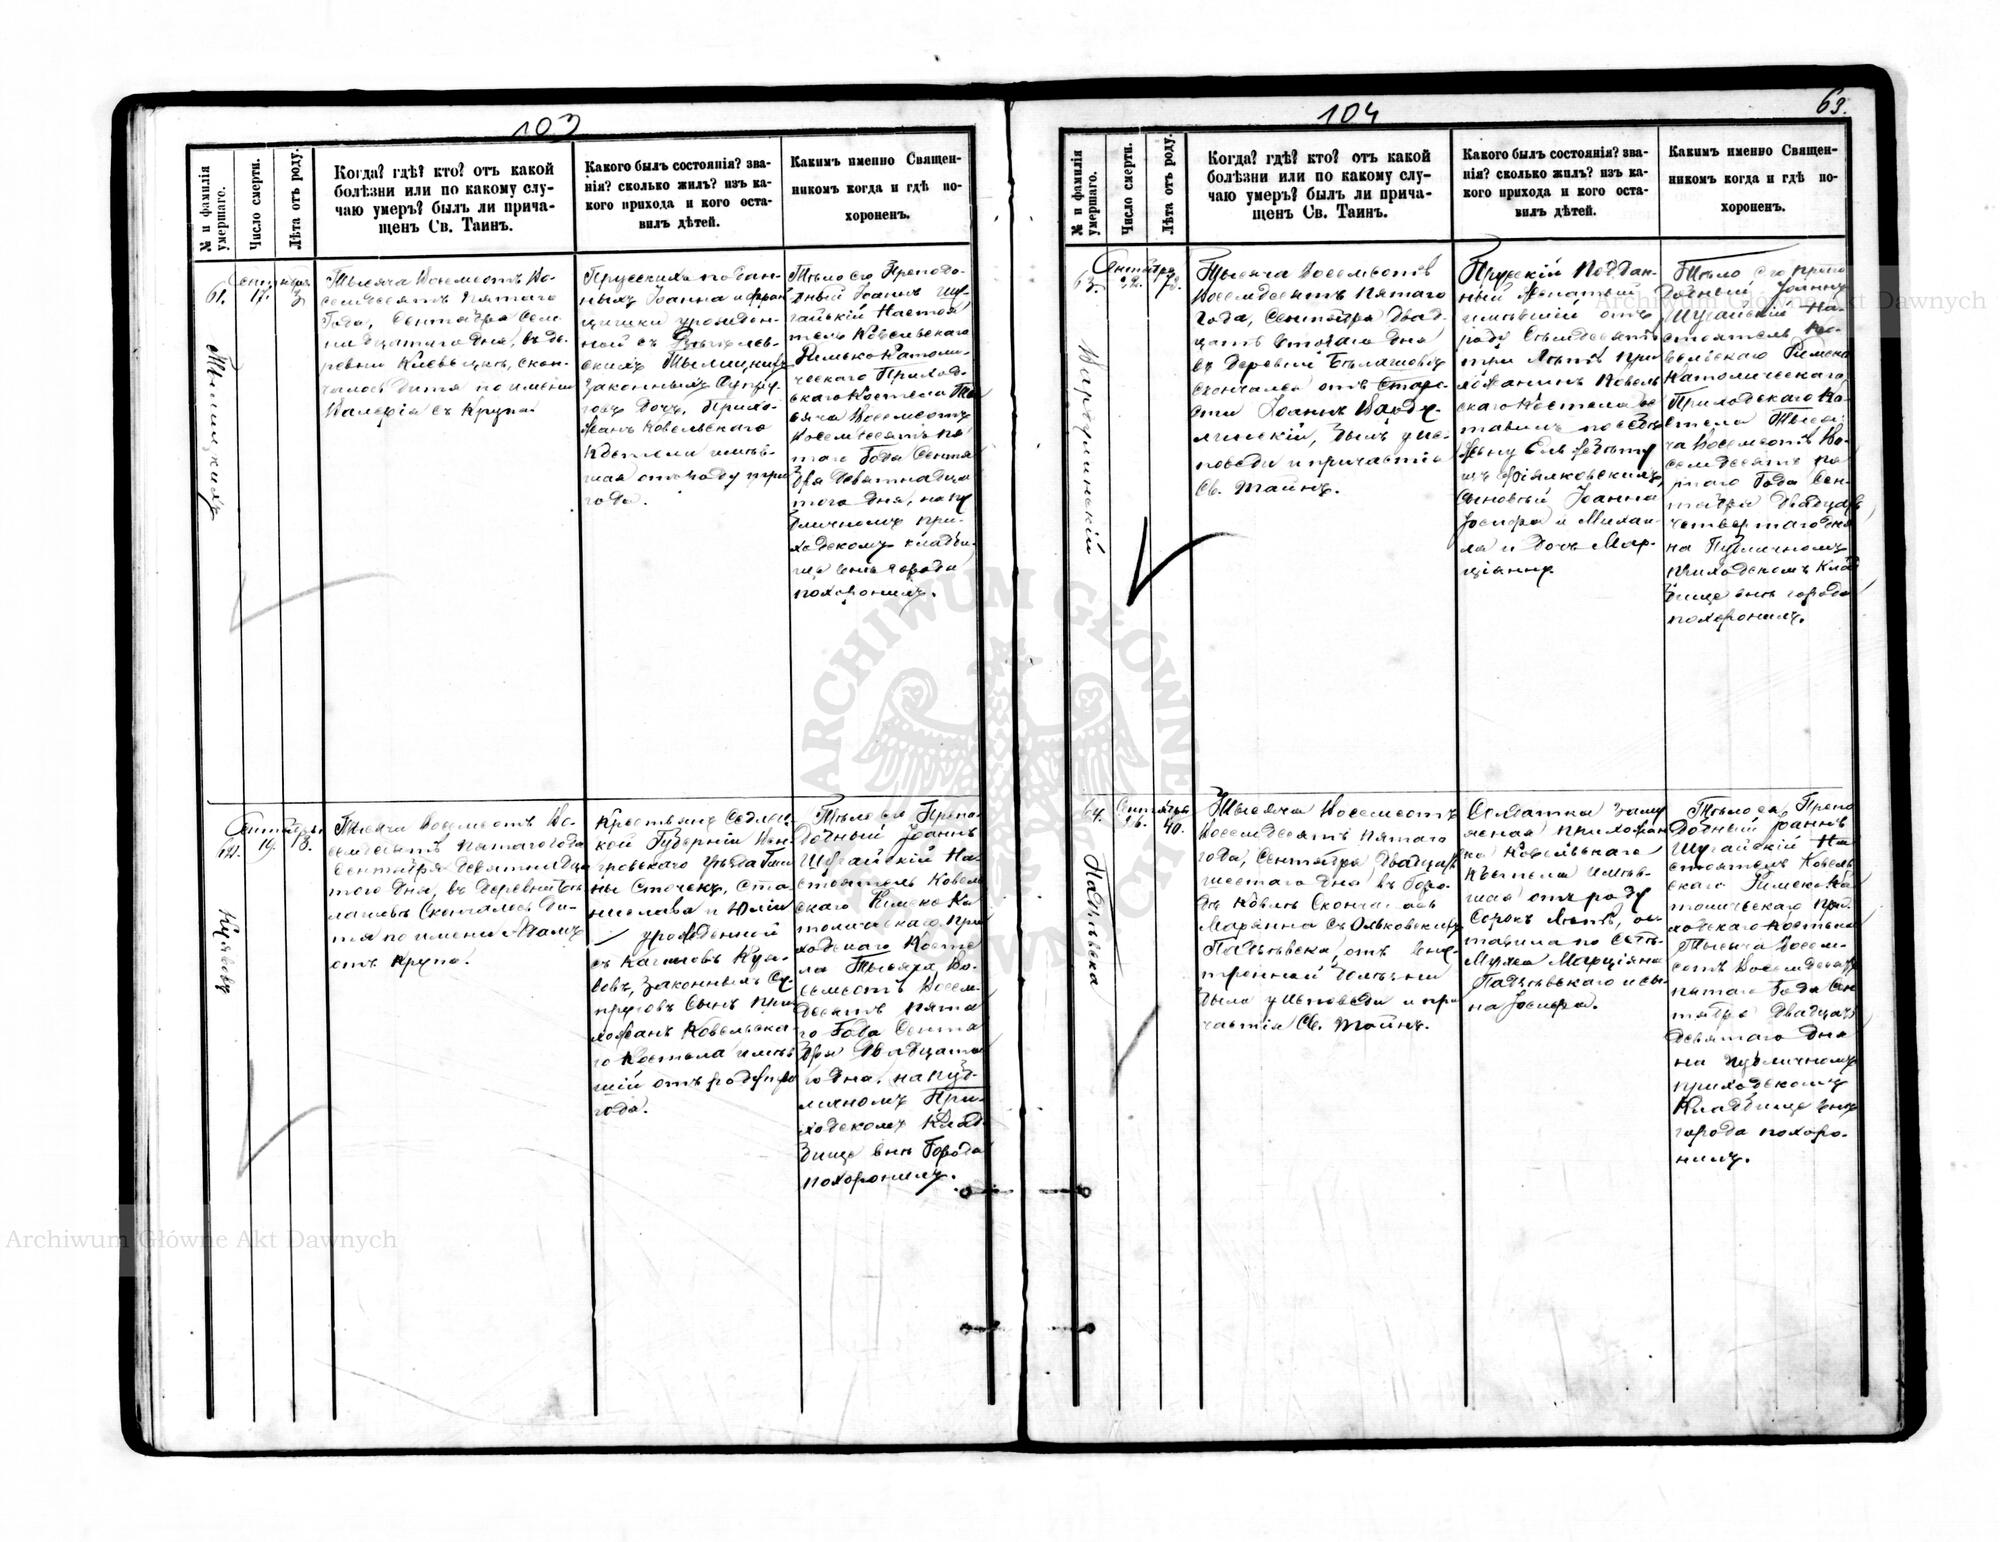 103
№ и фамилія умершаго.
Число смерти.
Лѣта отъ роду.
Когда? гдѣ? кто? отъ какой
болѣзни или по какому слу-
чаю умеръ? былъ ли прича-
щенъ Св. Таинъ.
Какого былъ состоянія? зва-
нія? сколько жилъ? изъ ка-
кого прихода и кого оста-
вилъ дѣтей.
Какимъ именно Священ-
никомъ когда и гдѣ по-
хороненъ.
61.
Сентября
17.
3
Тысяча восемьсотъ во-
семдесятъ пятаго
Года, Сентября Сем-
надцатаго дня, въ де-
ревни скон-
чалось дитя по имени
Валерія съ крупа.
Прусскихъ поддан-
ныхъ Іоанна и Фран
цишки урожден-
ной съ
законныхъ Супру-
говъ Дочь, Прихо-
жанъ Ковельскаго
Костела имѣв-
шая отъ роду три
года.
Тѣло его Преподо-
бный Іоаннъ Шу-
гайскій Настоя
тель Ковельскаго
Римско Католи-
ческаго Приход-
скаго Костела Ты-
сяча Восемсотъ
Восемдесятъ пя
таго Года Сентя
бря Девятнадца
того дня, на пу
бличномъ при-
ходскомъ кладби-
ще внѣ города
похоронилъ.
62.
Сентября
19.
Тысяча восемьсотъ во-
семдесятъ пятаго года
Сентября Девятнадца
того дня, въ деревни
Скончалось Ди-
тя по имени Адамъ
отъ крупа.
Крестьянъ Сѣдлец-
кой Губерніи Вен-
гровскаго уѣзда Гми
ны Сточекъ, Ста-
нислава и Юліи
урожденной
законныхъ Су-
пруговъ Сынъ При
хожанъ Ковельска-
го Костела имѣв
шій отъ роду
года.
Тѣло его Препо-
добный Іоаннъ
Шугайскій На-
стоятель Ковель
скаго Римско Ка
толическаго При
ходскаго Косте
ла Тысяча Во-
семсотъ Восем-
десятъ пята
го Года Сентя
бря Двадцата
го дня, на пуб-
личномъ При-
ходскомъ Клад-
бище внѣ Города
похоронилъ.
104
63.
№ и фамилія умершаго.
Число смерти.
Лѣта отъ роду.
Когда? гдѣ? кто? отъ какой
болѣзни или по какому слу-
чаю умеръ? былъ ли прича-
щенъ Св. Таинъ.
Какого былъ состоянія? зва-
нія? сколько жилъ? изъ ка-
кого прихода и кого оста-
вилъ дѣтей.
Какимъ именно Священ-
никомъ когда и гдѣ по-
хороненъ.
63.
Сентября
22.
Тысяча восемсотъ
восемдесятъ пятаго
года, Сентября Двад-
цать втораго дня
въ деревни
скончался отъ старо-
сти Іоаннъ
былъ у ис-
поведи и причастія
Св. Тайнъ.
Прусскій Поддан-
ный Женатый
имѣвшій отъ
роду Семьдесятъ
три лѣтъ При
хожанинъ Ковель
скаго Костела ос
тавилъ по себѣ
жену Елжбету
Сыновей Іоанна
Іосифа и Михаи-
ла и Дочь Мар-
ціанну
Тѣло его Препо
добный Іоаннъ
Шугайскій На-
стоятель Ко-
вельскаго Римско
Католическаго
Приходскаго Ко
стела Тысе
ча Восемсотъ Во-
семдесятъ пя
таго Года Сен-
тября Двадцать
четвертаго дня
на Публичномъ
приходскомъ Клад
бище внѣ города
похоронилъ.
64.
Сентября
26.
40.
Тысяча восемсотъ
восемдесятъ пятаго
года, Сентября Двадцать
шестаго дня въ Горо-
дѣ Ковлѣ Скончалась
Маріанна съ Ольковскихъ
отъ вну-
тренней
была у исповеди и при
частія Св. Тайнъ.
Солдатка Заму
жная прихожан
ка Ковельскаго
Костела имѣв-
шая отъ роду
Сорокъ лѣтъ, ос-
тавила по себѣ
Мужа Марціяна
и сы-
на Іосифа.
Тѣло ея Препо
добный Іоаннъ
Шугайскій На-
стоятель Ковель
скаго Римско Ка
толическаго При
ходскаго Костела
Тысяча Восем-
сотъ Восемдесятъ
пятаго Года Сен
тября Двадцать
девятаго дня
на публичномъ
приходскомъ
Кладбище внѣ
города похоро-
нилъ.
ARCHIWUM GŁÓWNE
Archiwum Główne Akt Dawnych
Archiwum Główne Akt Dawnych